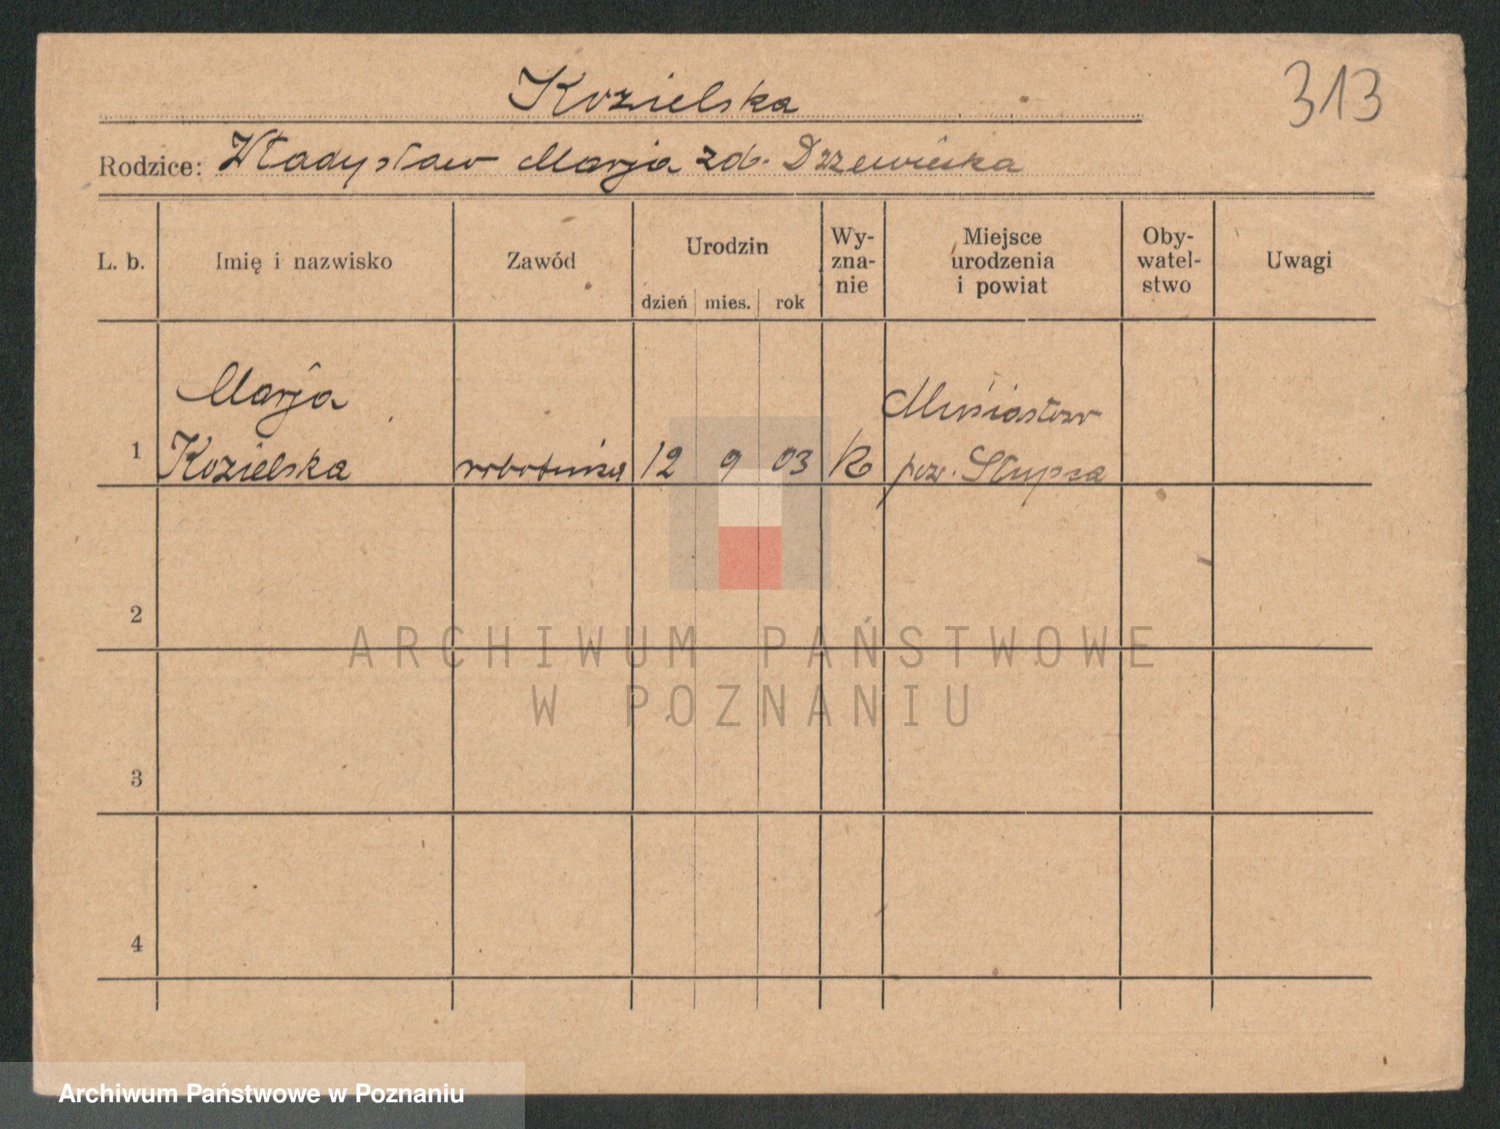 Kozielska
313
Rodzice: Władysław Marja zd. Drzewiecka
L. b.
Imię i nazwisko
Zawód
Urodzin
dzień mies. rok
Wy-
zna-
nie
Miejsce
urodzenia
i powiat
Oby-
watel-
stwo
Uwagi
Marja
1 Kozielska robotnica 12 9 03 Rk
pow. Słupca
2
3
4
ARCHIWUM PAŃSTWOWE
W POZNANIU
Archiwum Państwowe w Poznaniu